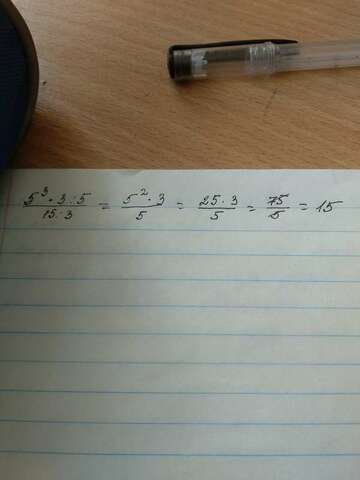 5³·3:5/15:3 = 5²·3/5 = 25·3/5 = 75/5 = 15